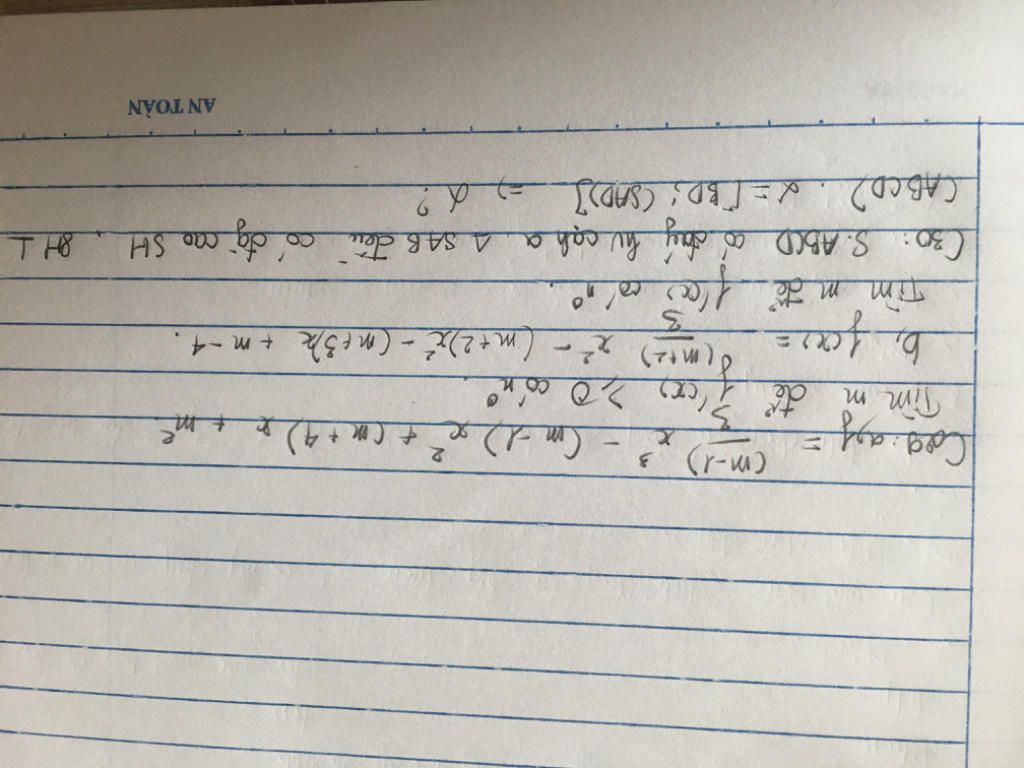 C29: a, f = (m-1)/3 x³ - (m-1)x² + (m+4)x + m².
Tìm m để f'(x) ≥ 0 có n°.
b, f(x) = (m+2)/3 x² - (m+2)x² - (m+3)x + m-1.
Tìm m để f'(x) có n°.
C30: S.ABCD có đáy hv cạh a. Δ SAB đều có đg cao SH, SH ⊥
(ABCD). α = [BD; (SAD)] => α?
AN TOÀN